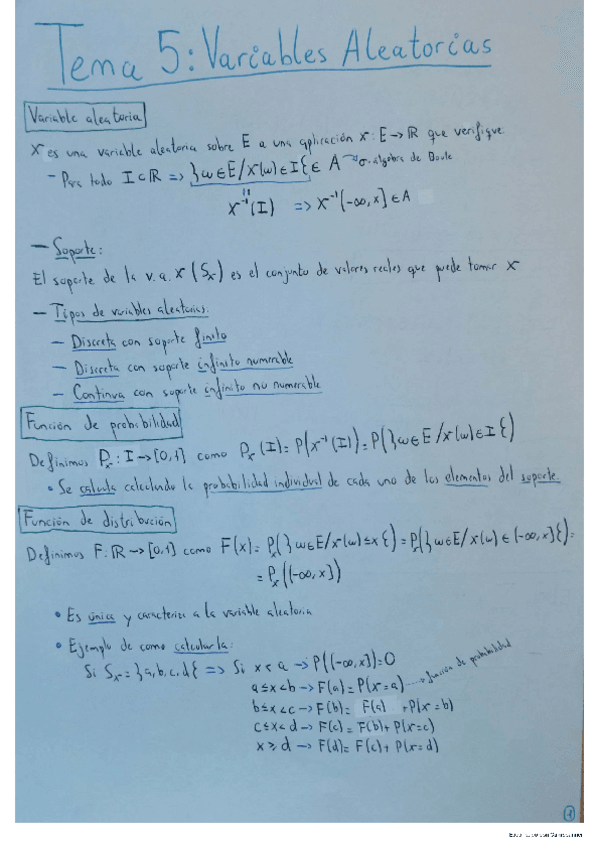 Tema 5: Variables Aleatorias
Variable aleatoria
X es una variable aleatoria sobre E a una aplicación X: E → ℝ que verifique:
- Para todo I ⊂ ℝ => }ω ∈ E / X(ω) ∈ I{ ∈ A → σ-algebra de Boole
X⁻¹(I) => X⁻¹(-∞, x] ∈ A
- Soporte:
El soporte de la v.a. X (Sx) es el conjunto de valores reales que puede tomar X
- Tipos de variables aleatorias:
- Discreta con soporte finito
- Discreta con soporte infinito numerable
- Continua con soporte infinito no numerable
Función de probabilidad
Definimos Px: I → [0,1] como Px(I) = P(X⁻¹(I)) = P(}ω ∈ E / X(ω) ∈ I{)
• Se calcula calculando la probabilidad individual de cada uno de los elementos del soporte
Función de distribución
Definimos F: ℝ → [0,1] como F(x) = Px(}ω ∈ E / X(ω) ≤ x{) = Px(}ω ∈ E / X(ω) ∈ (-∞, x]{) =
= Px((-∞, x])
• Es única y caracteriza a la variable aleatoria
• Ejemplo de como calcularla:
Si Sx = }a, b, c, d{ => Si x < a → P((-∞, x]) = 0
a ≤ x < b → F(a) = P(X = a) → función de probabilidad
b ≤ x < c → F(b) = F(a) + P(X = b)
c ≤ x < d → F(c) = F(b) + P(X = c)
x ≥ d → F(d) = F(c) + P(X = d)
1